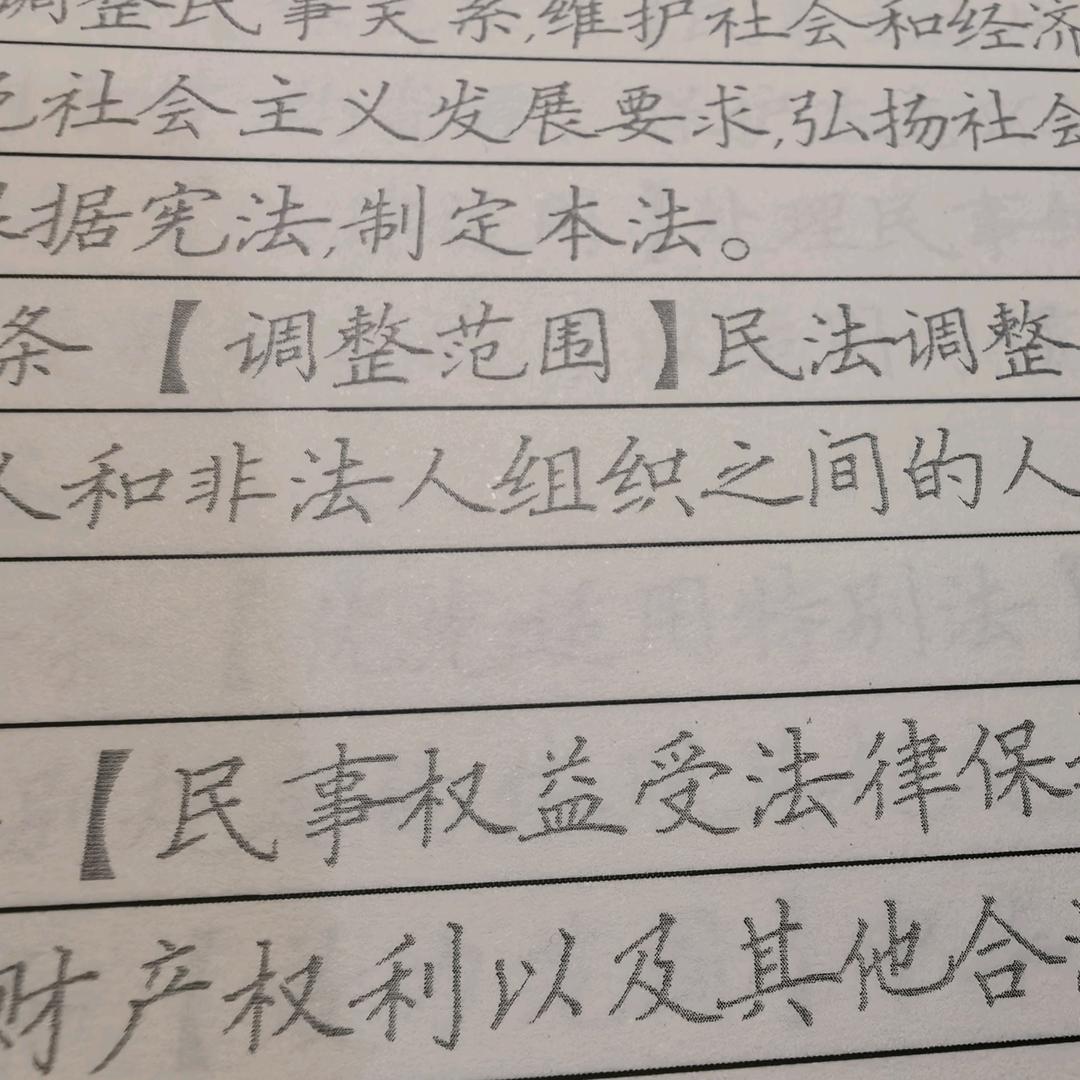 调整民事关系,维护社会和经济
色社会主义发展要求,弘扬社会
根据宪法,制定本法。
条 【调整范围】民法调整
人和非法人组织之间的人
【民事权益受法律保护
财产权利以及其他合法